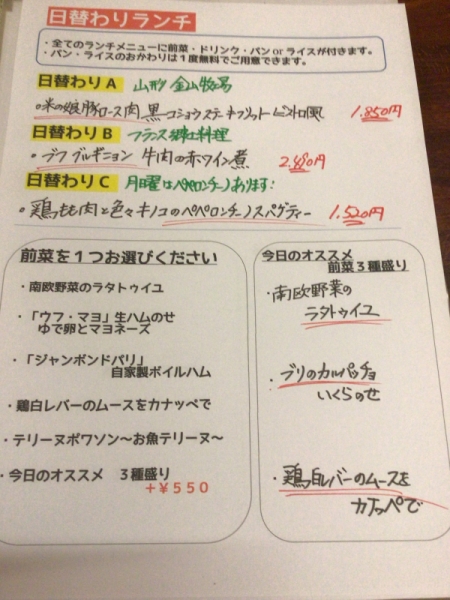 日替わりランチ
・全てのランチメニューに前菜・ドリンク・パンorライスが付きます。
・パン・ライスのおかわりは1度無料でご用意できます。
日替わりA 山形 金山牧場
・米の娘豚ロース肉 黒コショウステーキフリット ビストロ風 1.850円
日替わりB フランス郷土料理
・ブフ ブルギニョン 牛肉の赤ワイン煮 2.480円
日替わりC 月曜はペペロンチーノあります:
・鶏もも肉と色々キノコのペペロンチーノスパゲティー 1.520円
前菜を1つお選びください
・南欧野菜のラタトゥイユ
・「ウフ・マヨ」生ハムのせ
ゆで卵とマヨネーズ
・「ジャンボンドパリ」
自家製ボイルハム
・鶏白レバーのムースをカナッペで
・テリーヌポワソン～お魚テリーヌ～
・今日のオススメ 3種盛り
＋￥550
今日のオススメ
前菜3種盛り
・南欧野菜の
ラタトゥイユ
・ブリのカルパッチョ
いくらのせ
・鶏白レバーのムースを
カナッペで